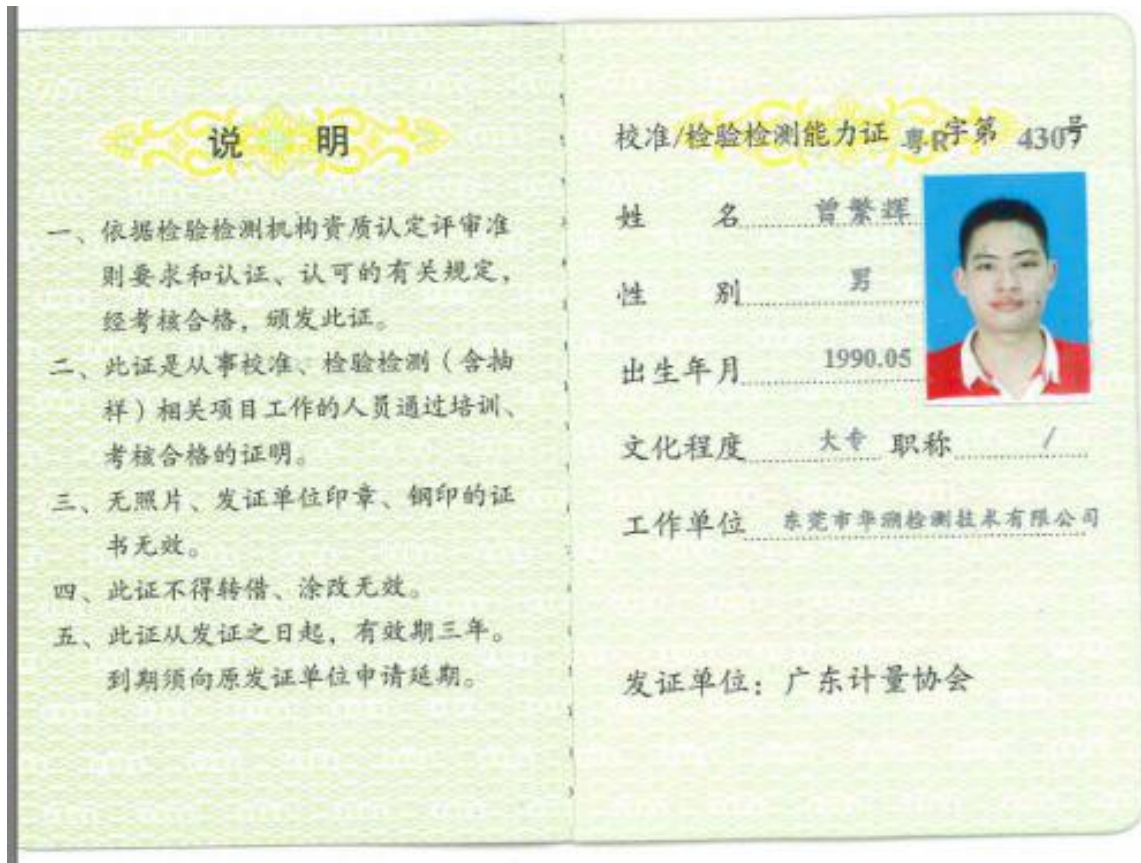 说 明
一、依据检验检测机构资质认定评审准
则要求和认证、认可的有关规定,
经考核合格,颁发此证。
二、此证是从事校准、检验检测(含抽
样)相关项目工作的人员通过培训、
考核合格的证明。
三、无照片、发证单位印章、钢印的证
书无效。
四、此证不得转借、涂改无效。
五、此证从发证之日起,有效期三年。
到期须向原发证单位申请延期。
校准/检验检测能力证 粤R字第 4307号
姓 名 曾繁辉
性 别 男
出生年月 1990.05
文化程度 大专 职称 /
工作单位 东莞市华溯检测技术有限公司
发证单位:广东计量协会